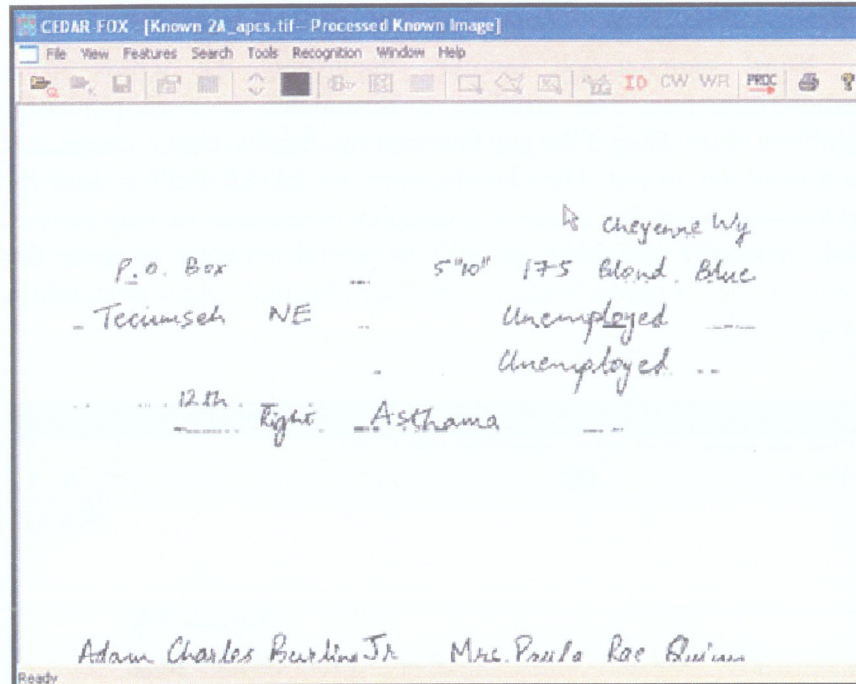 CEDAR-FOX - [Known 2A_apcs.tif-- Processed Known Image]
File View Features Search Tools Recognition Window Help
ID CW WR PROC ?
Cheyenne Wy
P.O. Box 5"10" 175 Blond Blue
Tecumseh NE Unemployed
Unemployed
12th Right Asthama
Adam Charles Burline Jr Mrs. Paula Rae Quinn
Ready